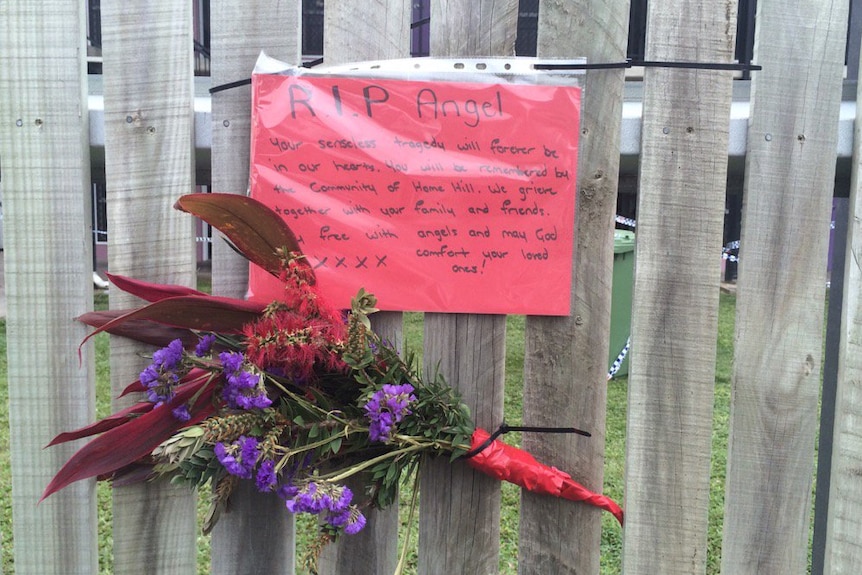 R.I.P Angel
Your senseless tragedy will forever be
in our hearts. You will be remembered by
the Community of Home Hill. We grieve
together with your family and friends.
free with angels and may God
xxxx comfort your loved
ones!